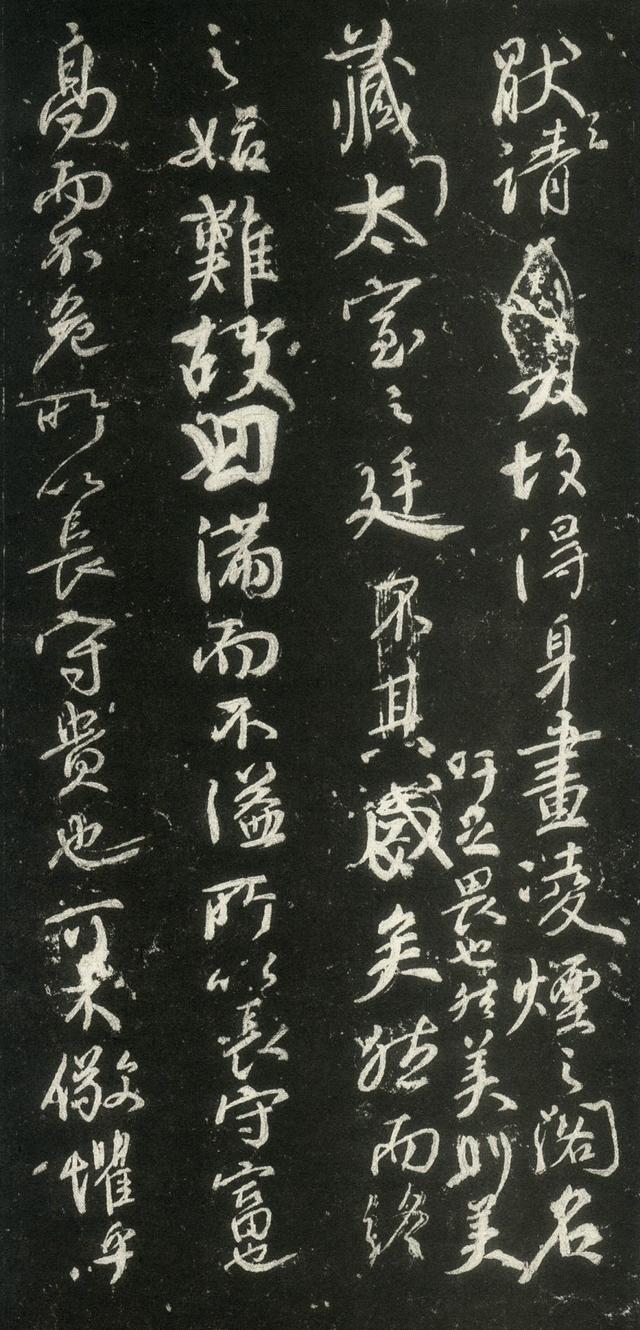 猒之請故得身畫凌煙之閣名
吁足畏也然美則美
藏太室之廷不其盛矣然而終
之始難故曰滿而不溢所以長守富也
高而不危所以長守貴也可不儆懼乎